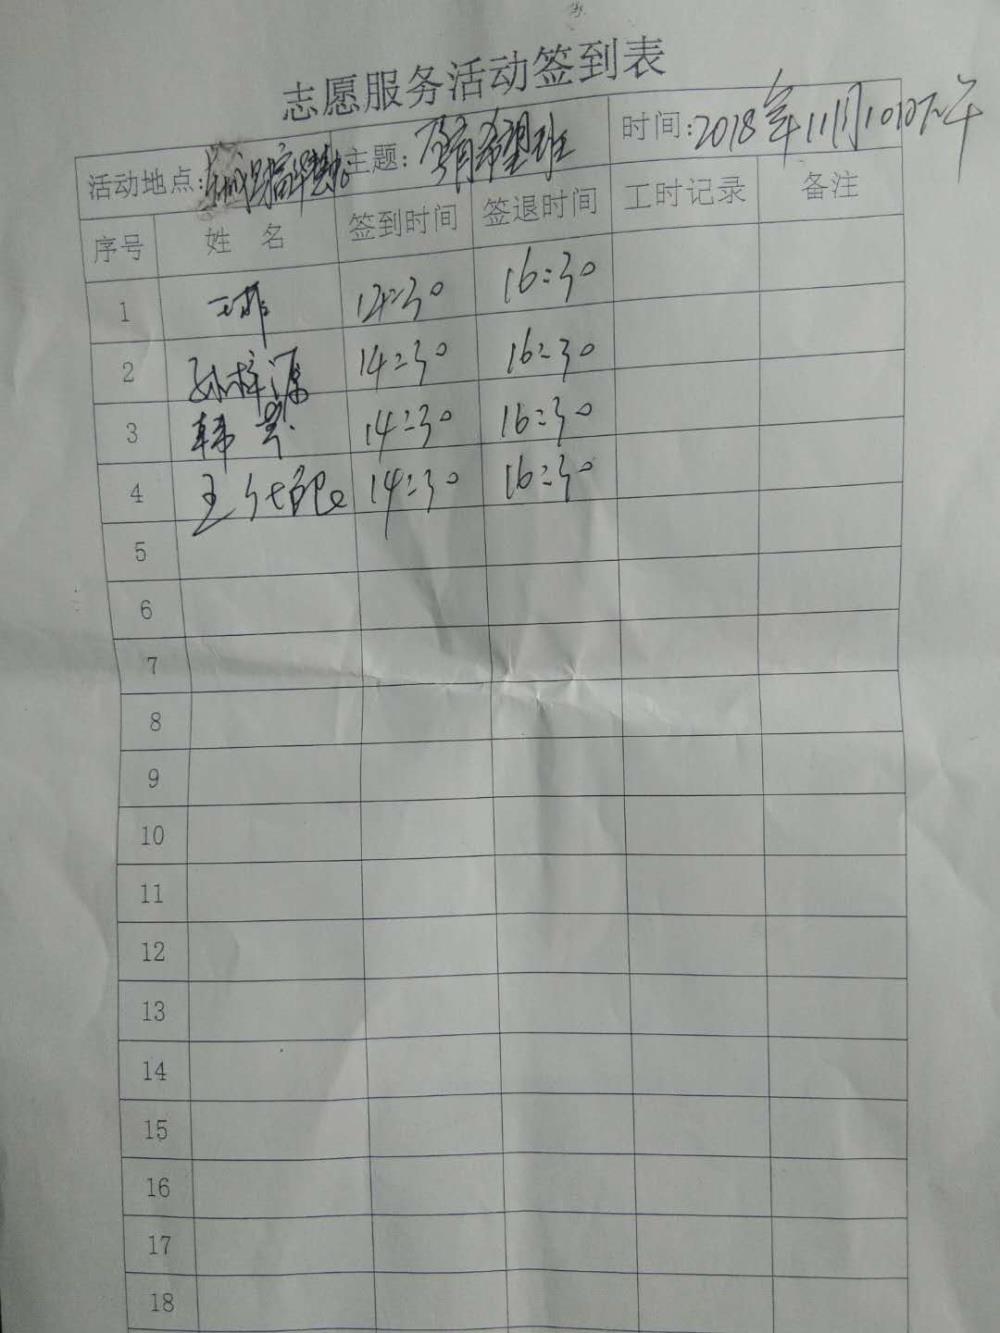 志愿服务活动签到表
活动地点: 主题: 孕育希望班 时间: 2018年11月10日下午
序号 姓 名 签到时间 签退时间 工时记录 备注
1 14:30 16:30
2 孙梓源 14:30 16:30
3 韩 14:30 16:30
4 王 14:30 16:30
5
6
7
8
9
10
11
12
13
14
15
16
17
18